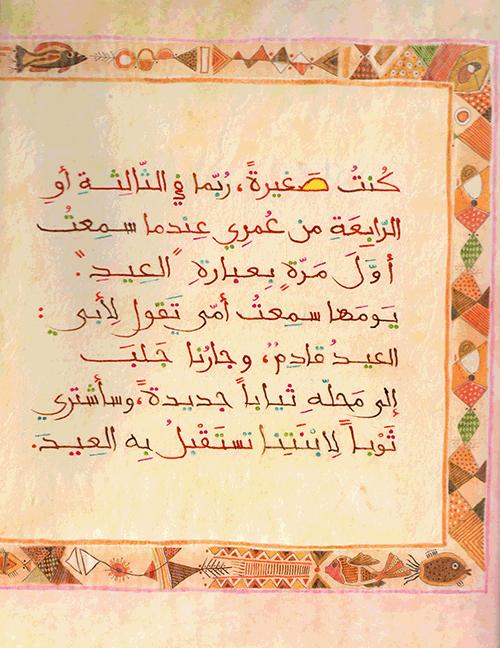 كُنتُ صَغيرةً، رُبّما في الثّالِثةِ أو
الرّابِعَةِ مِن عُمري عِندما سمِعتُ
أوّلَ مَرّةٍ بِعبارةِ "العِيدِ".
يَومَها سمِعتُ أمّي تَقول لِأبي:
العيدُ قادِمٌ، وجارُنا جَلبَ
إلى مَحلّهِ ثِياباً جديدةً، وسأشتري
ثَوباً لابْنَتِنا تستَقْبلُ بِهِ العِيدَ.